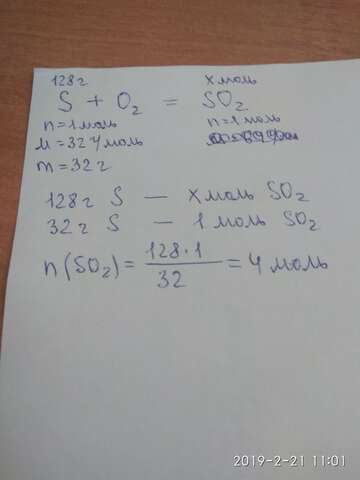 128 г х моль
S + O₂ = SO₂
n = 1 моль n = 1 моль
M = 32 г/моль
m = 32 г
128 г S — х моль SO₂
32 г S — 1 моль SO₂
n(SO₂) = 128·1 / 32 = 4 моль
2019-2-21 11:01